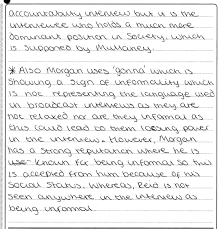 accountability interview but it is the
interviewee who holds a much more
dominant position in society, which
is supported by Mullaney.
* Also Morgan uses 'gonna' which is
showing a sign of informality which
is not representing the language used
in broadcast interviews as they are
not relaxed nor are they informal as
this could lead to them loosing power
in the interview. However, Morgan
has a strong reputation where he is
use known for being informal so this
is accepted from him because of his
social status. Whereas, Reid is not
seen anywhere in the interview as
being informal.